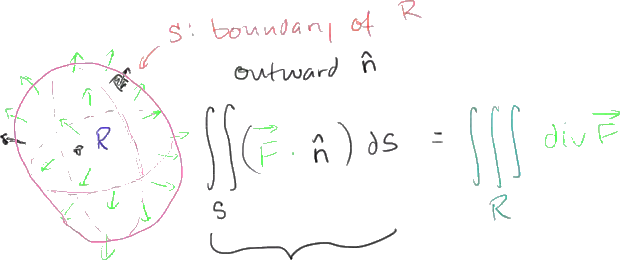 S: boundary of R
outward n̂
R
∬_S (F⃗ · n̂) dS = ∭_R div F⃗